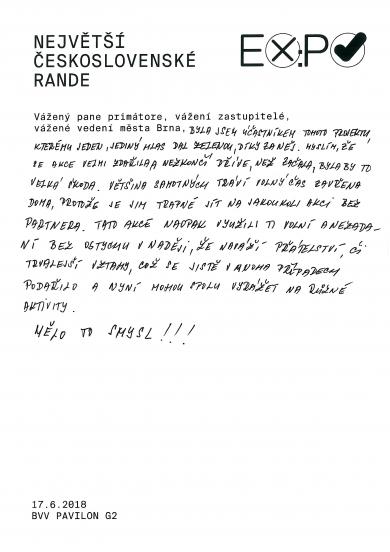 NEJVĚTŠÍ
ČESKOSLOVENSKÉ
RANDE
EX:PO
Vážený pane primátore, vážení zastupitelé,
vážené vedení města Brna, BYLA JSEM ÚČASTNÍKEM TOHOTO PROJEKTU,
KTERÉMU JEDEN, JEDINÝ HLAS DAL ZELENOU, DÍKY ZA NĚJ. MYSLÍM, ŽE
SE AKCE VELMI ZDAŘILA A NEZKONČÍ DŘÍVE, NEŽ ZAČALA, BYLA BY TO
VELKÁ ŠKODA. VĚTŠINA SAMOTNÝCH TRÁVÍ VOLNÝ ČAS ZAVŘENA
DOMA, PROTOŽE SE JIM TRAPNÉ JÍT NA JAKOUKOLI AKCI BEZ
PARTNERA. TATO AKCE NAOPAK VYUŽILI TI VOLNÍ A NEZADA-
NÍ BEZ OSTYCHU V NADĚJI, ŽE NAVÁŽÍ PŘÁTELSTVÍ, ČI
TRVALEJŠÍ VZTAHY, COŽ SE JISTĚ V MNOHA PŘÍPADECH
PODAŘILO A NYNÍ MOHOU SPOLU VYRÁŽET NA RŮZNÉ
AKTIVITY.
MĚLO TO SMYSL!!!
17.6.2018
BVV PAVILON G2